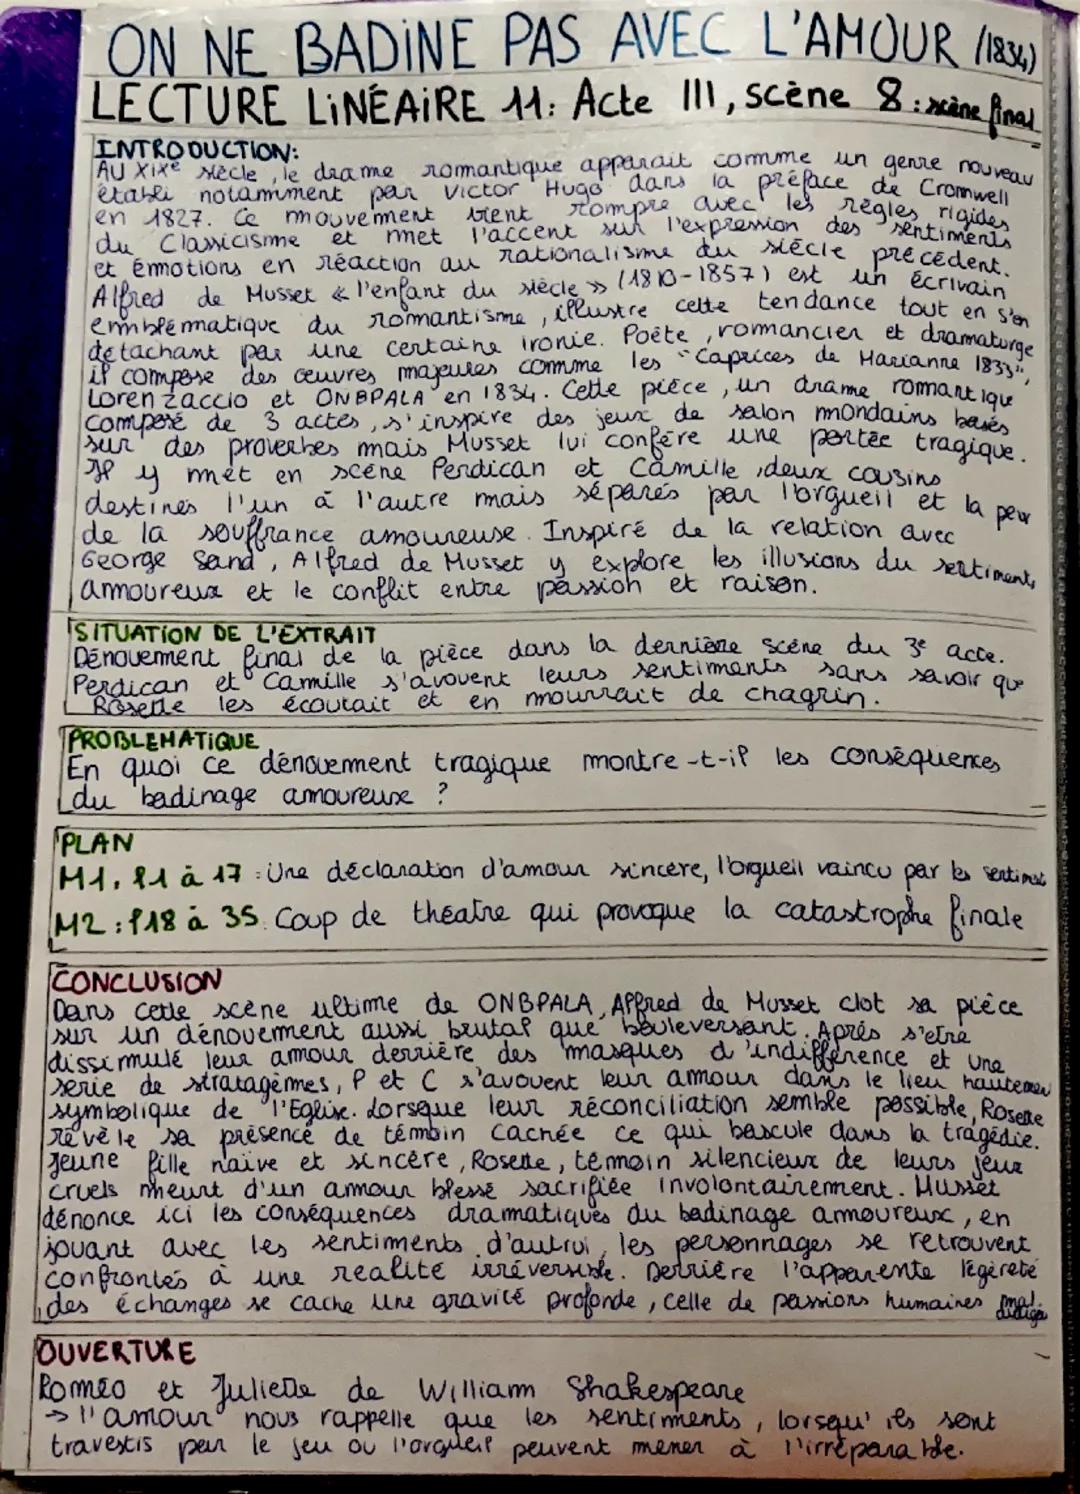 ON NE BADINE PAS AVEC L'AMOUR (1834)
LECTURE LINÉAIRE 11: Acte III, scène 8 : scène final
INTRODUCTION:
AU XIXe siècle, le drame romantique apparait comme un genre nouveau
établi notamment par Victor Hugo dans la préface de Cromwell
en 1827. Ce mouvement vient rompre avec les règles rigides
du Classicisme et met l'accent sur l'expression des sentiments
et émotions en réaction au rationalisme du siècle précédent.
Alfred de Musset « l'enfant du siècle » (1810-1857) est un écrivain
emblématique du romantisme, illustre cette tendance tout en s'en
détachant par une certaine ironie. Poète, romancier et dramaturge
il compose des œuvres majeures comme les "Caprices de Marianne 1833",
Lorenzaccio et ONBPALA en 1834. Cette pièce, un drame romantique
composé de 3 actes, s'inspire des jeux de salon mondains basés
sur des proverbes mais Musset lui confère une portée tragique.
Il y met en scène Perdican et Camille, deux cousins
destinés l'un à l'autre mais séparés par l'orgueil et la peur
de la souffrance amoureuse. Inspiré de la relation avec
George Sand, Alfred de Musset y explore les illusions du sentiments
amoureux et le conflit entre passion et raison.
SITUATION DE L'EXTRAIT
Dénouement final de la pièce dans la dernière scène du 3e acte.
Perdican et Camille s'avouent leurs sentiments sans savoir que
Rosette les écoutait et en mourrait de chagrin.
PROBLEMATIQUE
En quoi ce dénouement tragique montre-t-il les conséquences
du badinage amoureux ?
PLAN
M1. l1 à 17 : Une déclaration d'amour sincère, l'orgueil vaincu par les sentiment
M2 : l18 à 35. Coup de théatre qui provoque la catastrophe finale
CONCLUSION
Dans cette scène ultime de ONBPALA, Alfred de Musset clot sa pièce
sur un dénouement aussi brutal que bouleversant. Après s'etre
dissimulé leur amour derrière des masques d'indifférence et une
serie de stratagèmes, P et C s'avouent leur amour dans le lieu hautement
symbolique de l'Eglise. Lorsque leur réconciliation semble possible, Rosette
révèle sa présence de témoin cachée ce qui bascule dans la tragédie.
Jeune fille naïve et sincère, Rosette, témoin silencieux de leurs jeux
cruels meurt d'un amour blessé sacrifiée involontairement. Musset
dénonce ici les conséquences dramatiques du badinage amoureux, en
jouant avec les sentiments d'autrui, les personnages se retrouvent
confrontés à une realité irréversible. Derrière l'apparente légèreté
des échanges se cache une gravité profonde, celle de passions humaines mal
OUVERTURE
Roméo et Juliette de William Shakespeare
→ l'amour nous rappelle que les sentiments, lorsqu'ils sont
travestis par le jeu ou l'orgueil peuvent mener à l'irréparable.